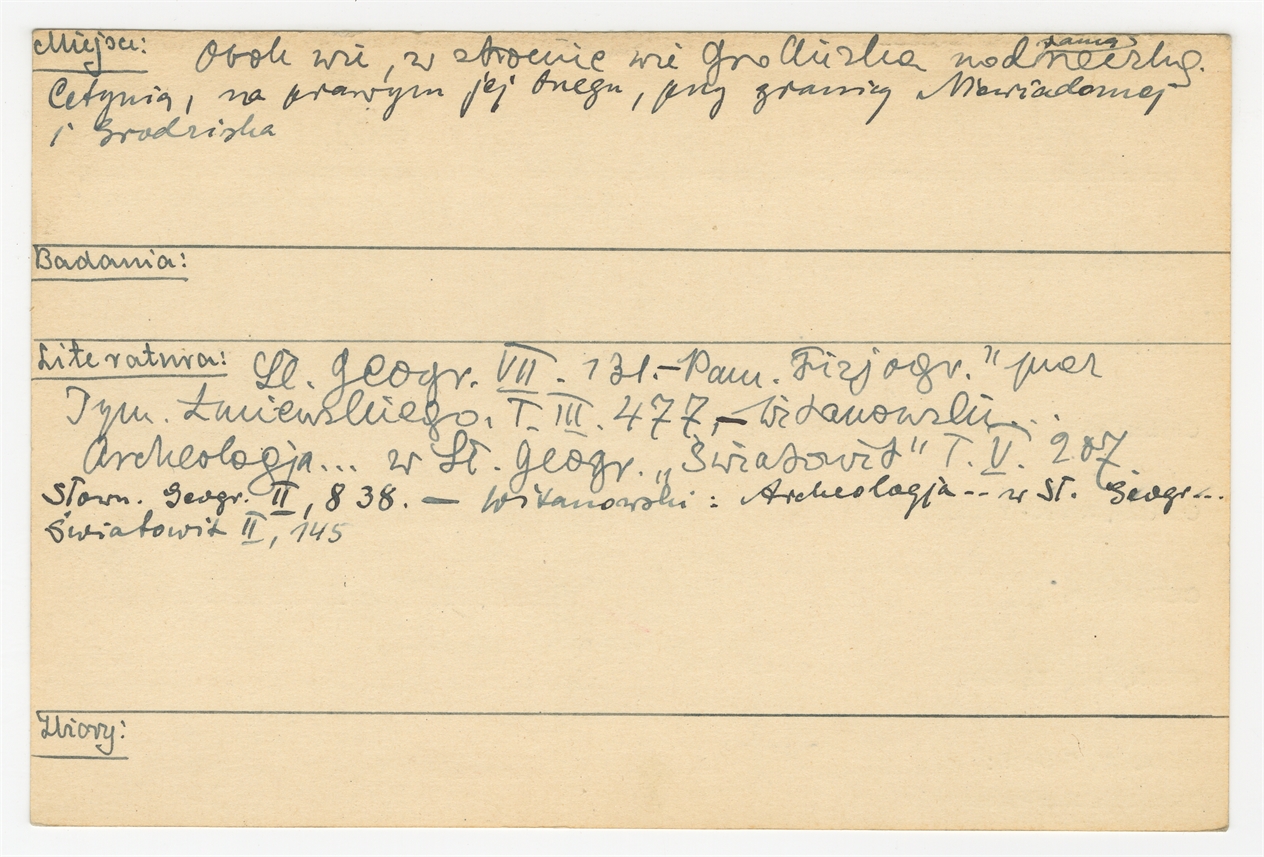 Miejsce: Obok wsi, w stronie wsi Grodziska nad samą rzeczką
Cetynią, na prawym jej brzegu, przy granicy Niewiadomej
i Grodziska
Badania:
Literatura: Sł. Geogr. VII. 131.– Pam. Fizjogr." przez
Zym. Łuniewskiego. T. III. 477, – Witanowski...
Archeologja... w Sł. Geogr. „Światowit" T. V. 207
Słown. Geogr. II, 838. – Witanowski: Archeologja... w Sł. Geogr...
Światowit II, 145
Zbiory: